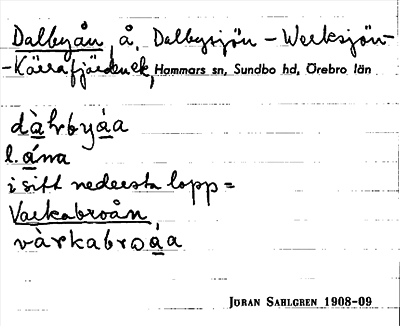 Dalbyån, å, Dalbysjön – Werksjön –
– Kärrafjärden etc, Hammars sn, Sundbo hd, Örebro län
dàhrbyáa
l. ánna
i sitt nedersta lopp =
Varkabroån
vàrkabroáa
JÖRAN SAHLGREN 1908-09